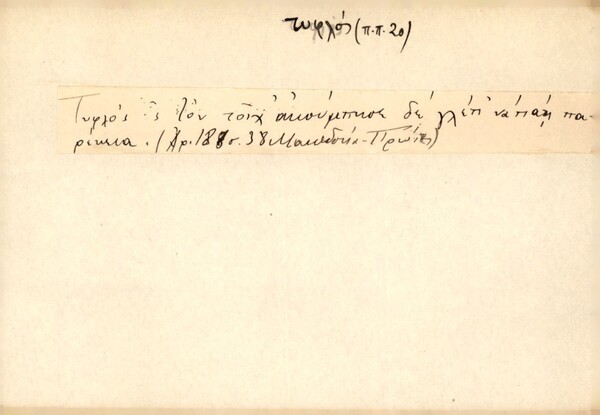 τυφλός (π.π. 20)
Τυφλός 'ς τὸν τοῖχ' ἀκούμπησε δὲ γλέπ' νὰ πάῃ πα-
ρέκεια. (Ἀρ. 188 σ. 38 Μακεδονία-Πρώτη)